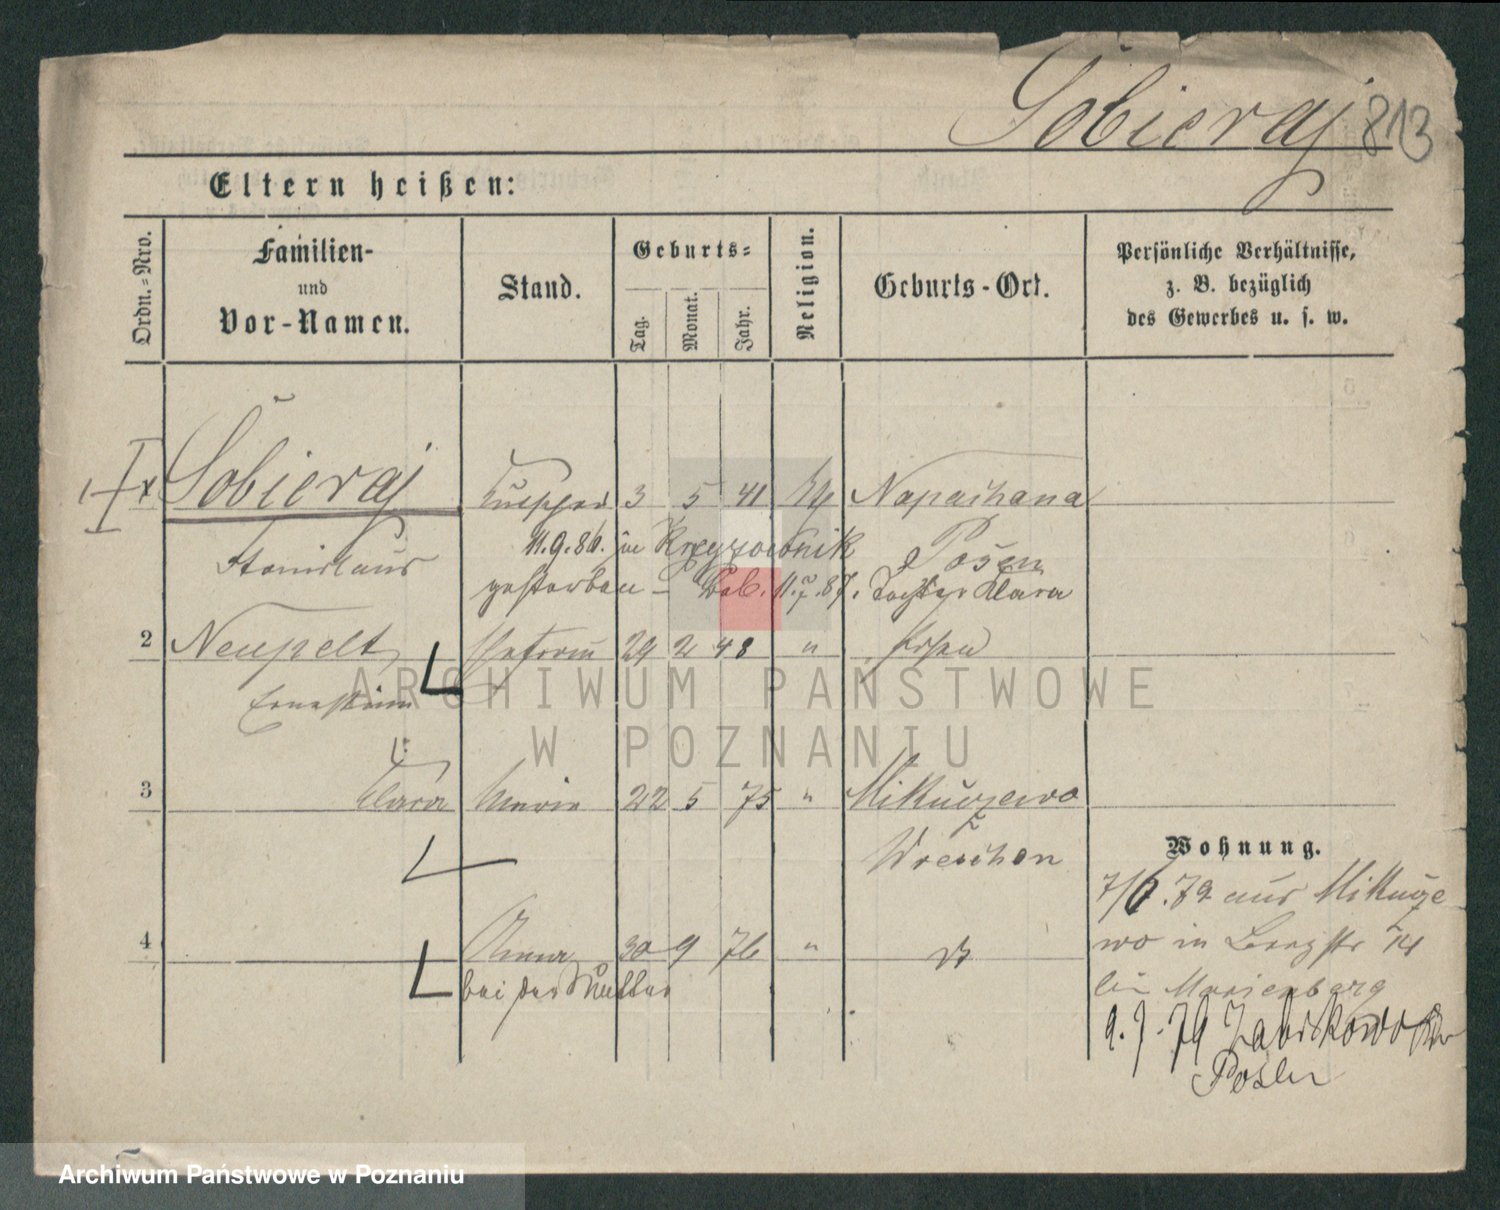 Sobieraj 813
Eltern heißen:
Ordn.-Nro.
Familien-
und
Vor-Namen.
Stand.
Geburts-
Tag.
Monat.
Jahr.
Religion.
Geburts-Ort.
Persönliche Verhältnisse,
z. B. bezüglich
des Gewerbes u. s. w.
Sobieraj 3 5 41 Napachana
Stanislaus
Posen
11.9.86. in
gestorben – Geb. 11.7.87. Tochter Clara
2 Neupelt Ehefrau 29 2 48 "
Ernestine
3 Clara 22 5 75 " Mikuszewo
Wreschen
4 Anna 30 9 76 "
bei der Mutter
Wohnung.
7/6.79 aus Mikusze
wo in Bergstr 14
bei Marienberg
9.7.79 Zabikowo Kr
Posen
ARCHIWUM PAŃSTWOWE
W POZNANIU
Archiwum Państwowe w Poznaniu